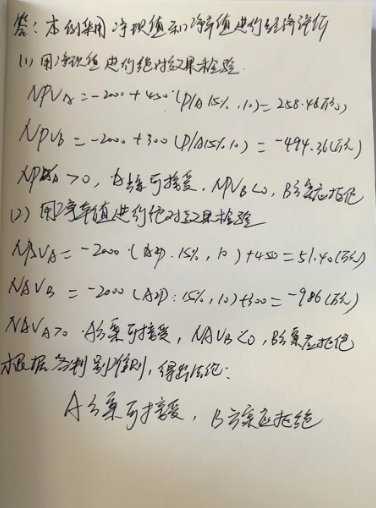 答:本例采用净现值和净年值进行经济评价
(1) 用净现值进行绝对效果检验
NPVA=-2000+450·(P/A 15%,10)=258.46(万元)
NPVB=-2000+300(P/A15%,10)=-494.36(万元)
NPVA>0,A方案可接受,NPVB<0,B方案应拒绝
(2) 用净年值进行绝对效果检验
NAVA=-2000·(A/P.15%,10)+450=51.40(万元)
NAVB=-2000(A/P:15%,10)+300=-986(万元)
NAVA>0·A方案可接受,NAVB<0,B方案应拒绝
根据各判别准则,得出结论:
A方案可接受,B方案应拒绝